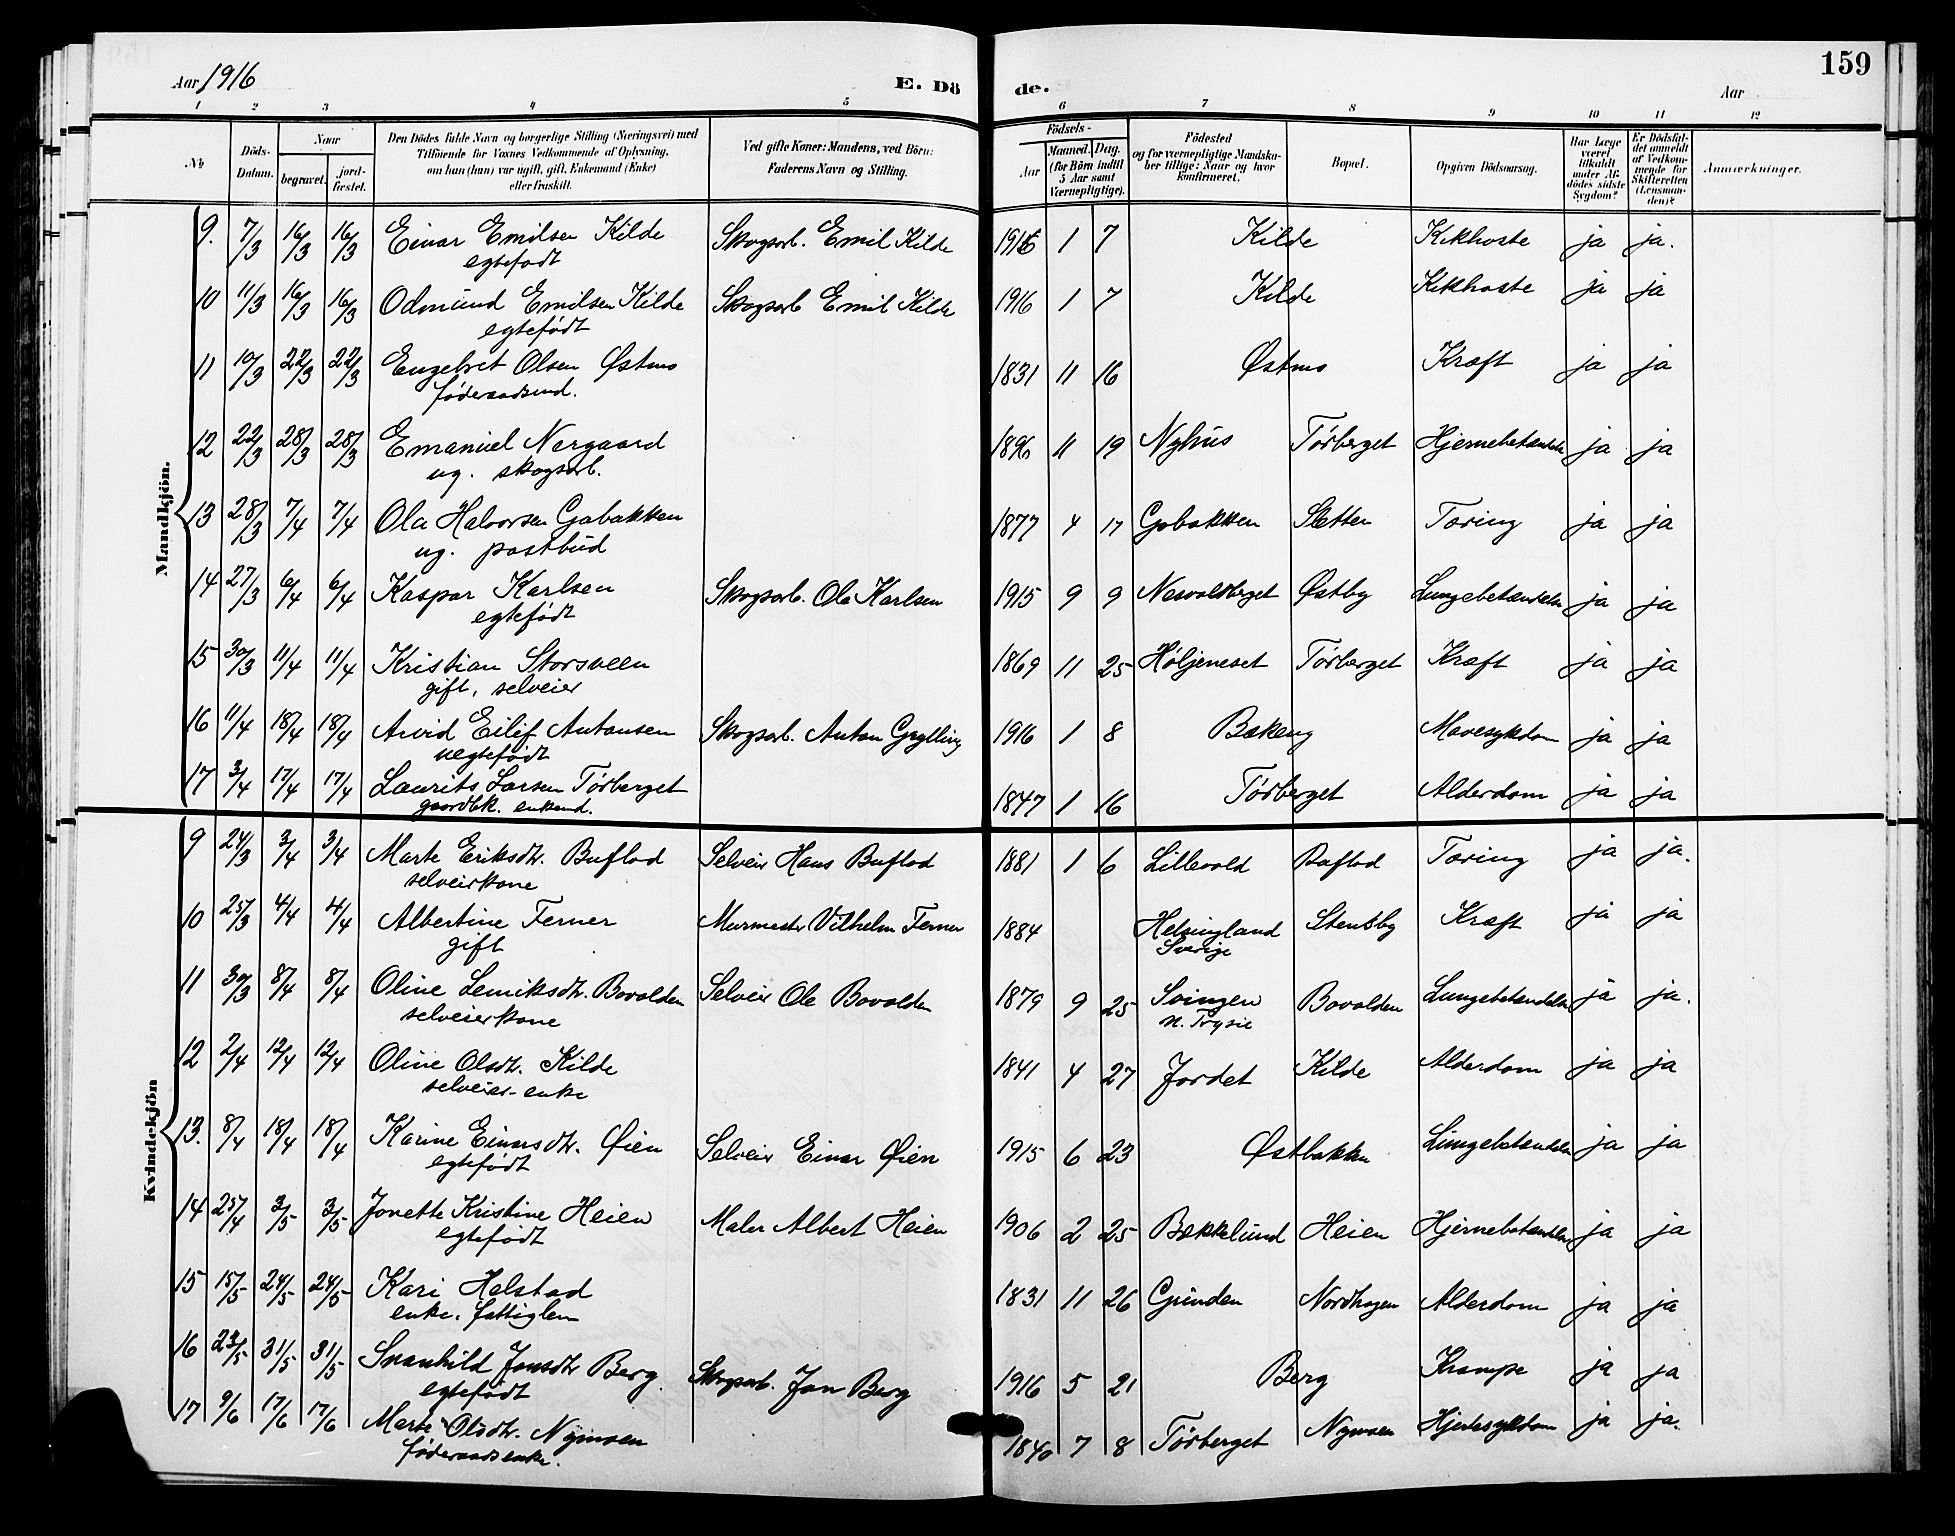 Aar 1916
E. Dö
de.
Aar
159
1 2 3 4 5 6 7 8 9 10 11 12
No
Döds-Datum.
Naar
begravet.
jord-fæstet.
Den Dödes fulde Navn og borgerlige Stilling (Næringsvei) med
Tilföiende for Voxnes Vedkommende af Oplysning,
om han (hun) var ugift, gift, Enkemand (Enke)
eller fraskilt.
Ved gifte Koner: Mandens, ved Börn:
Faderens Navn og Stilling.
Födsels-
Aar
Maaned. Dag.
(for Börn indtil
5 Aar samt
Værnepligtige).
Födested
og for værnepligtige Mandska-
ber tillige: Naar og hvor
konfirmeret.
Bopæl.
Opgiven Dödsaarsag.
Har Læge
været
tilkaldt
under Af-
dödes sidste
Sygdom?
Er Dödsfal-
det anmeldt
af Vedkom-
mende for
Skifteretten
(Lensman-
den)?
Anmærkninger.
Mandkjön.
9. 7/3 16/3 16/3 Einar Emilsen Kilde Skogsarb. Emil Kilde 1916 1 7 Kilde Kikhoste ja ja.
egtefødt
10 11/3 16/3 16/3 Odmund Emilsen Kilde Skogsarb Emil Kilde 1916 1 7 Kilde Kikhoste ja ja
egtefødt
11 10/3 22/3 22/3 Engebret Olsen Østmo 1831 11 16 Østmo Kræft ja ja
føderaadsmd.
12 22/3 28/3 28/3 Emanuel Nergaard 1896 11 19 Nyhus Tørberget Hjernebetændelse ja ja
ug. skogsarb.
13 28/3 7/4 7/4 Ola Halvorsen Gabakken 1877 4 17 Gobakken Sletten Tæring ja ja
ug. postbud
14 27/3 6/4 6/4 Kaspar Karlsen Skogsarb. Ola Karlsen 1915 9 9 Nesvoldberget Østby Lungebetændelse ja ja
egtefødt
15 30/3 11/4 11/4 Kristian Storsveen 1869 11 25 Høljeneset Tørberget Kræft ja ja
gift, selveier
16 11/4 18/4 18/4 Arvid Eilif Antonsen Skogsarb. Anton Grylling 1916 1 8 Bækeng Mavesykdom ja ja
uegtefødt
17 3/4 17/4 17/4 Laurits Larsen Tørberget 1847 1 16 Tørberget Alderdom ja ja
gaardbk. enkemd.
Kvindekjön
9 24/3 3/4 3/4 Marte Eriksdtr. Buflod Selveier Hans Buflod 1881 1 6 Lillevold Buflod Tæring ja ja.
selveierkone
10 25/3 4/4 4/4 Albertine Ferner Murmester Vilhelm Ferner 1884 Helsingland Stensby Kræft ja ja
gift Sverige
11 30/3 8/4 8/4 Oline Lemiksdtr. Bovolden Selveier Ole Bovolden 1879 9 25 Svingen Bovolden Lungebetændelse ja ja.
selveierkone n. Trysil
12 2/4 12/4 12/4 Oline Olsdtr. Kilde 1841 4 27 Jordet Kilde Alderdom ja ja
selveier-enke
13. 8/4 18/4 18/4 Karine Einarsdtr. Øien Selveier Einar Øien 1915 6 23 Østbakken Lungebetændelse ja ja
egtefødt
14 25/4 3/5 3/5 Jonette Kristine Heien Maler Albert Heien 1906 2 25 Bækkelund Heien Hjernebetændelse ja ja
egtefødt
15 15/5 24/5 24/5 Kari Halstad 1831 11 26 Grunden Nordhagen Alderdom ja ja
enke, fattiglem
16 23/5 31/5 31/5 Svanhild Jonsdtr Berg Skogsarb. Jon Berg 1916 5 21 Berg Krampe ja ja
egtefødt
17 9/6 17/6 17/6 Marte Olsdtr. Nymoen 1840 7 8 Tørberget Nymoen Hjertesykdom ja ja.
føderaadsenke.